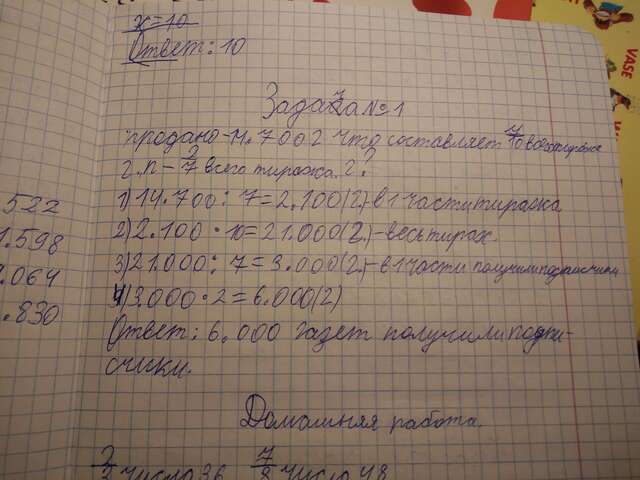 x=10
Ответ: 10
Задача №1
продано - 14.700 г что составляет 7/10 всего тиража
г.п - 2/7 всего тиража. г.?
1) 14.700 : 7 = 2.100 (г.) - в 1 части тиража
2) 2.100 · 10 = 21.000 (г.) - весь тираж.
3) 21.000 : 7 = 3.000 (г.) - в 1 части получили подписчики
4) 3.000 · 2 = 6.000 (г)
Ответ: 6.000 газет получили подпи-
счики.
Домашняя работа.
2/3 числа 36 7/8 числа 48
522
.598
.064
.830
VASE
VASE